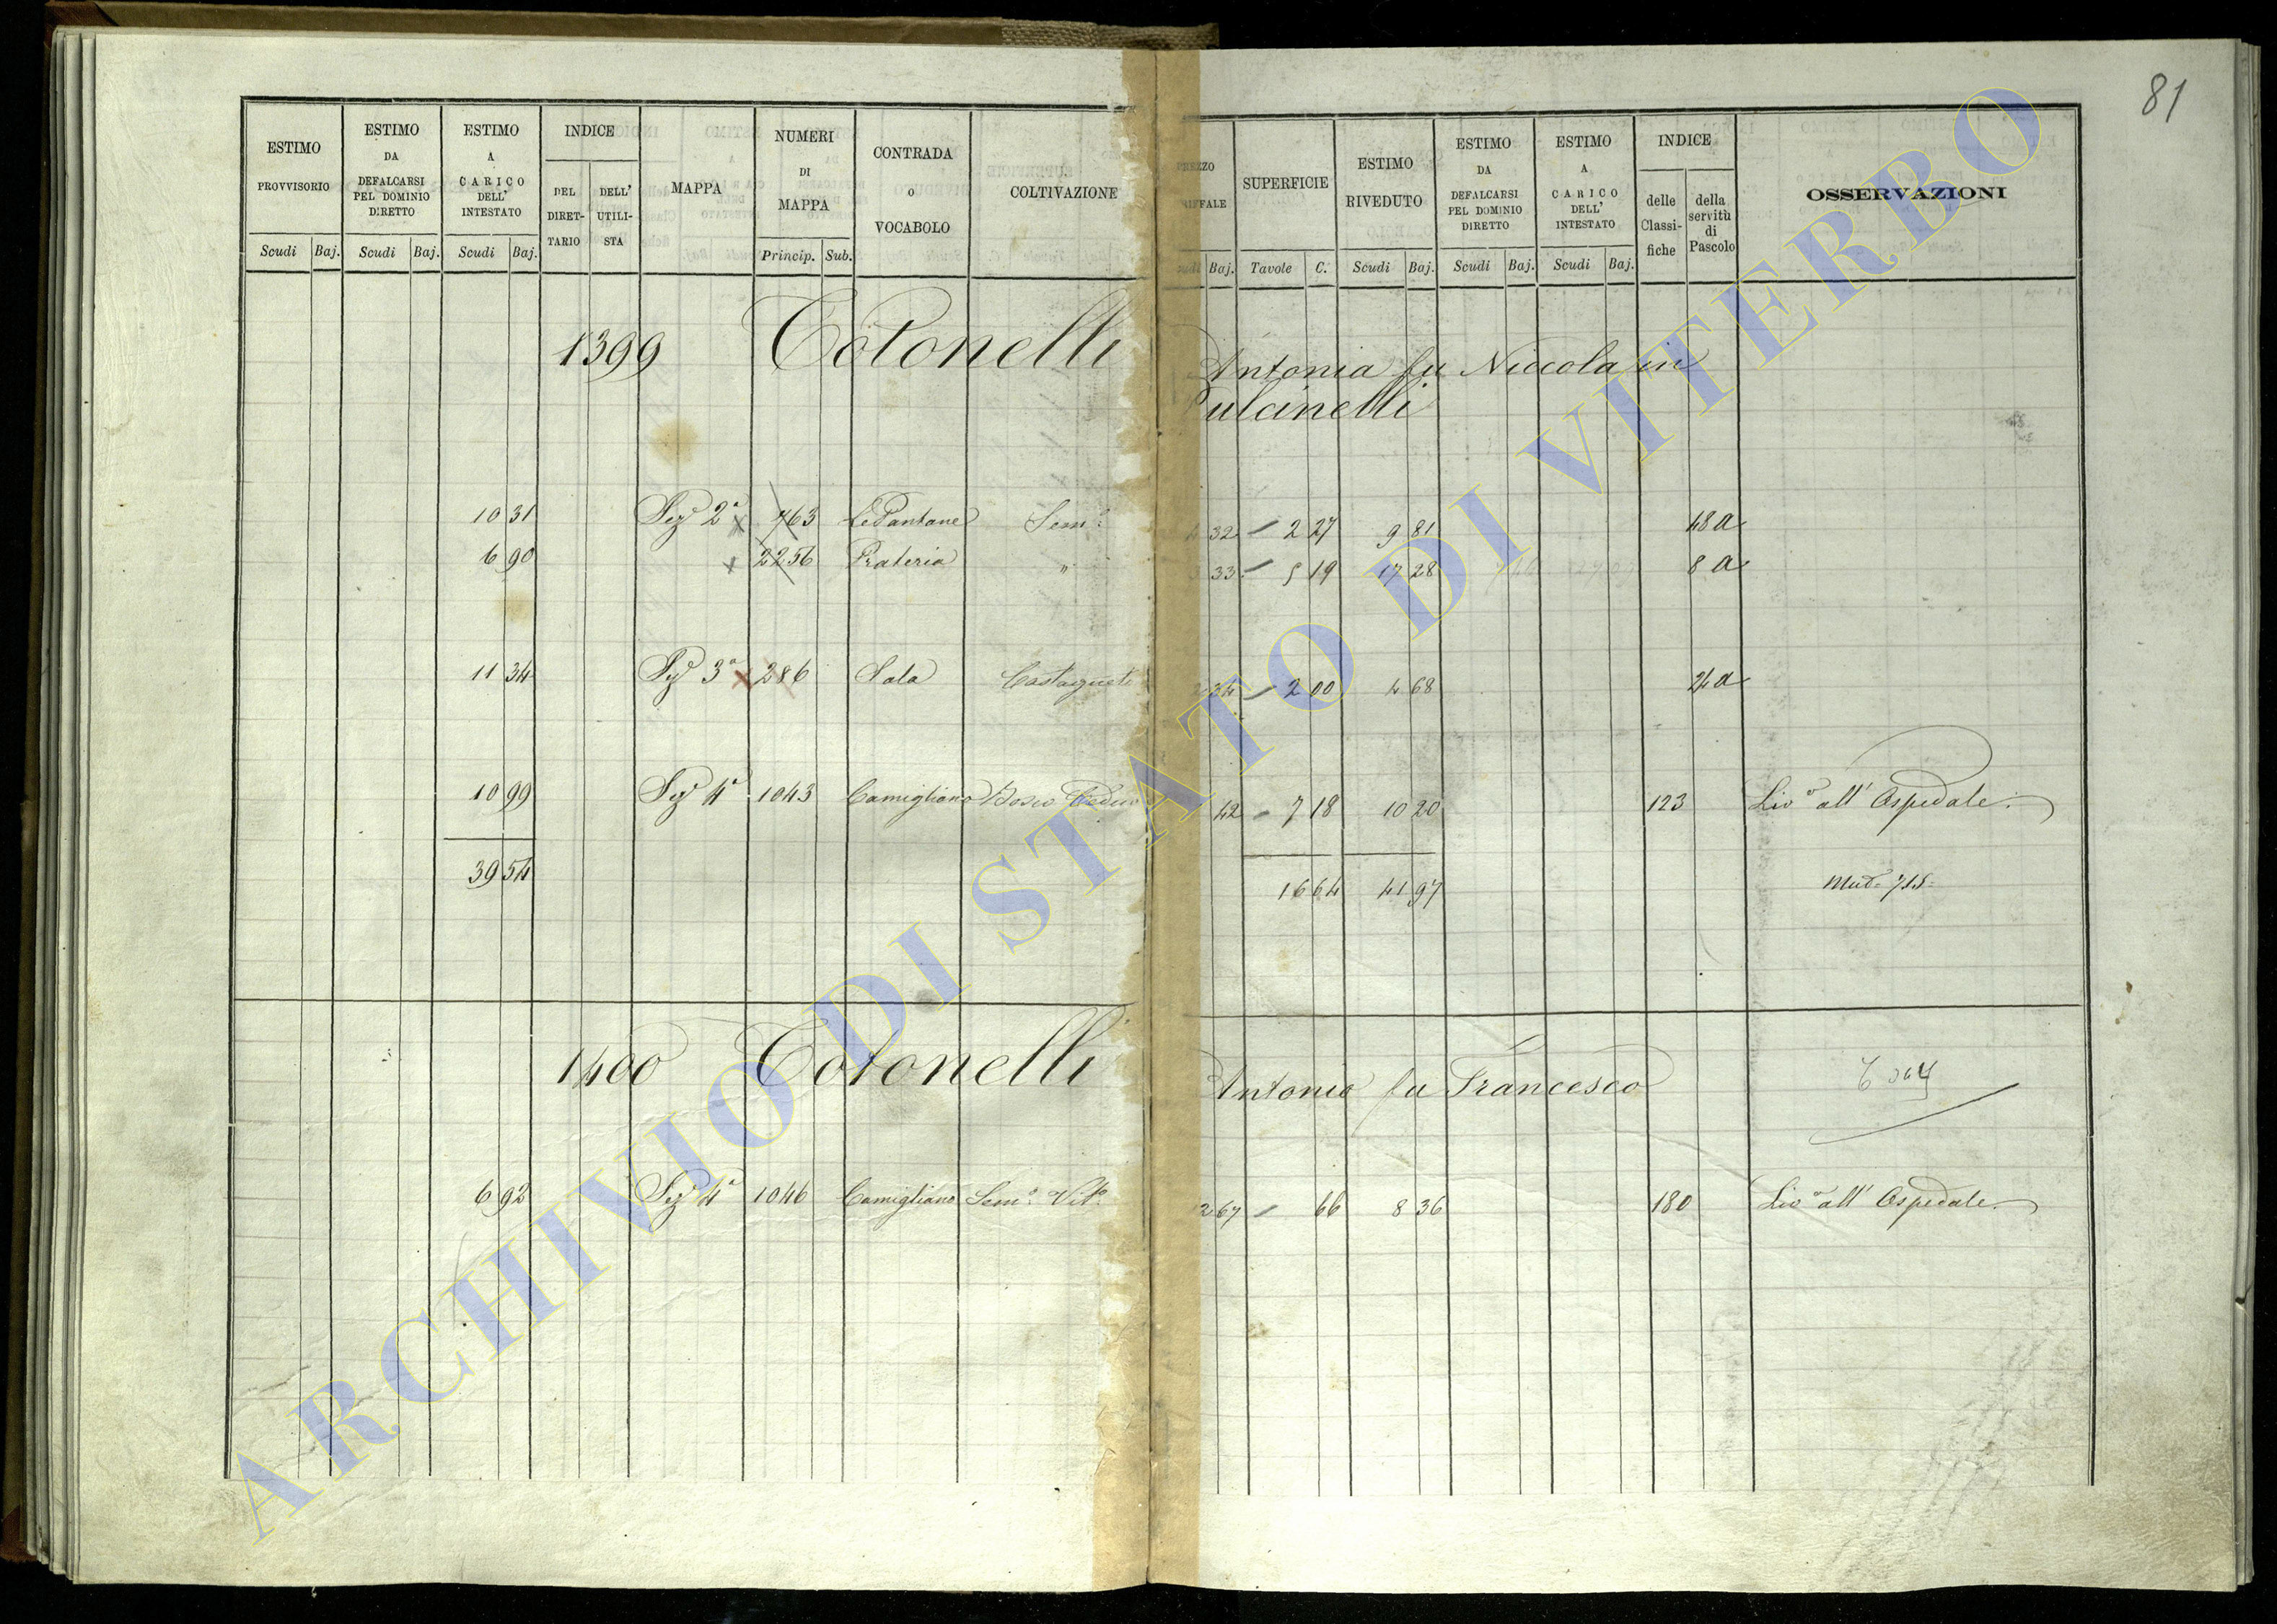 81
ESTIMO PROVVISORIO Scudi Baj.
ESTIMO DA DEFALCARSI PEL DOMINIO DIRETTO Scudi Baj.
ESTIMO A CARICO DELL' INTESTATO Scudi Baj.
INDICE DEL DIRET-TARIO DELL' UTILI-STA
MAPPA
NUMERI DI MAPPA Princip. Sub.
CONTRADA O VOCABOLO
COLTIVAZIONE
SUPERFICIE Tavole C.
ESTIMO RIVEDUTO Scudi Baj.
ESTIMO DA DEFALCARSI PEL DOMINIO DIRETTO Scudi Baj.
ESTIMO A CARICO DELL' INTESTATO Scudi Baj.
INDICE delle Classi-fiche della servitù di Pascolo
OSSERVAZIONI
1399 Totonelli Antonia fu Niccola in
Pulcinelli
10 31 Sezᵉ 2ª 763 Le Pantane Semº 4 32 2 27 9 81 48 a
6 90 2256 Prateria " 3 33 5 19 17 28 8 a
11 34 Sezᵉ 3ª 286 Sala Castagneto 2 34 2 00 4 68 24 a
10 99 Sezᵉ 4ª 1043 Camigliano Bosco Ceduo 1 42 7 18 10 20 123 Livº all' Ospedale.
39 54 16 64 41 97
1400 Totonelli Antonio fu Francesco
6 92 Sezᵉ 4ª 1046 Camigliano Semº Vitº 12 67 66 8 36 180 Livº all' Ospedale.
ARCHIVIO DI STATO DI VITERBO